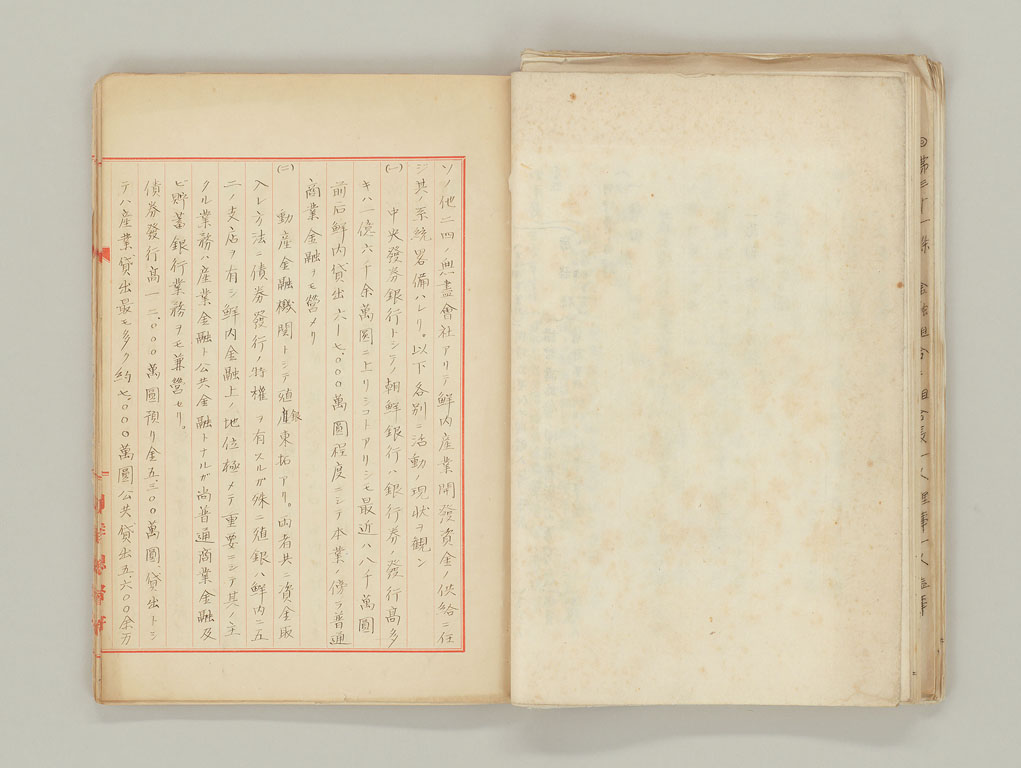 ソノ他二四ノ無盡會社アリテ鮮内産業開發資金ノ供給ニ任
ジ其ノ系統畧備ハレリ。以下各別ニ活動ノ現状ヲ観ン
(一) 中央發券銀行トシテノ朝鮮銀行ハ銀行券ノ發行高多
キハ一億六千余萬圓ニ上リシコトアリシモ最近ハ八千萬圓
前后鮮内貸出六ー七、〇〇〇萬圓程度ニシテ本業ノ傍ラ普通
商業金融ヲモ營メリ
(二) 動産金融機関トシテ殖産銀東拓アリ。両者共ニ資金取
入レ方法ニ債券發行ノ特權ヲ有スルガ殊ニ殖銀ハ鮮内ニ五
二ノ支店ヲ有シ鮮内金融上ノ地位極メテ重要ニシテ其ノ主
タル業務ハ産業金融ト公共金融トナルガ尚普通商業金融及
ビ貯蓄銀行業務ヲモ兼營セリ。
債券發行高一二、〇〇〇萬圓預リ金五、三〇〇萬圓貸出トシ
テハ産業貸出最モ多ク約七、〇〇〇萬圓公共貸出五、六〇〇余万